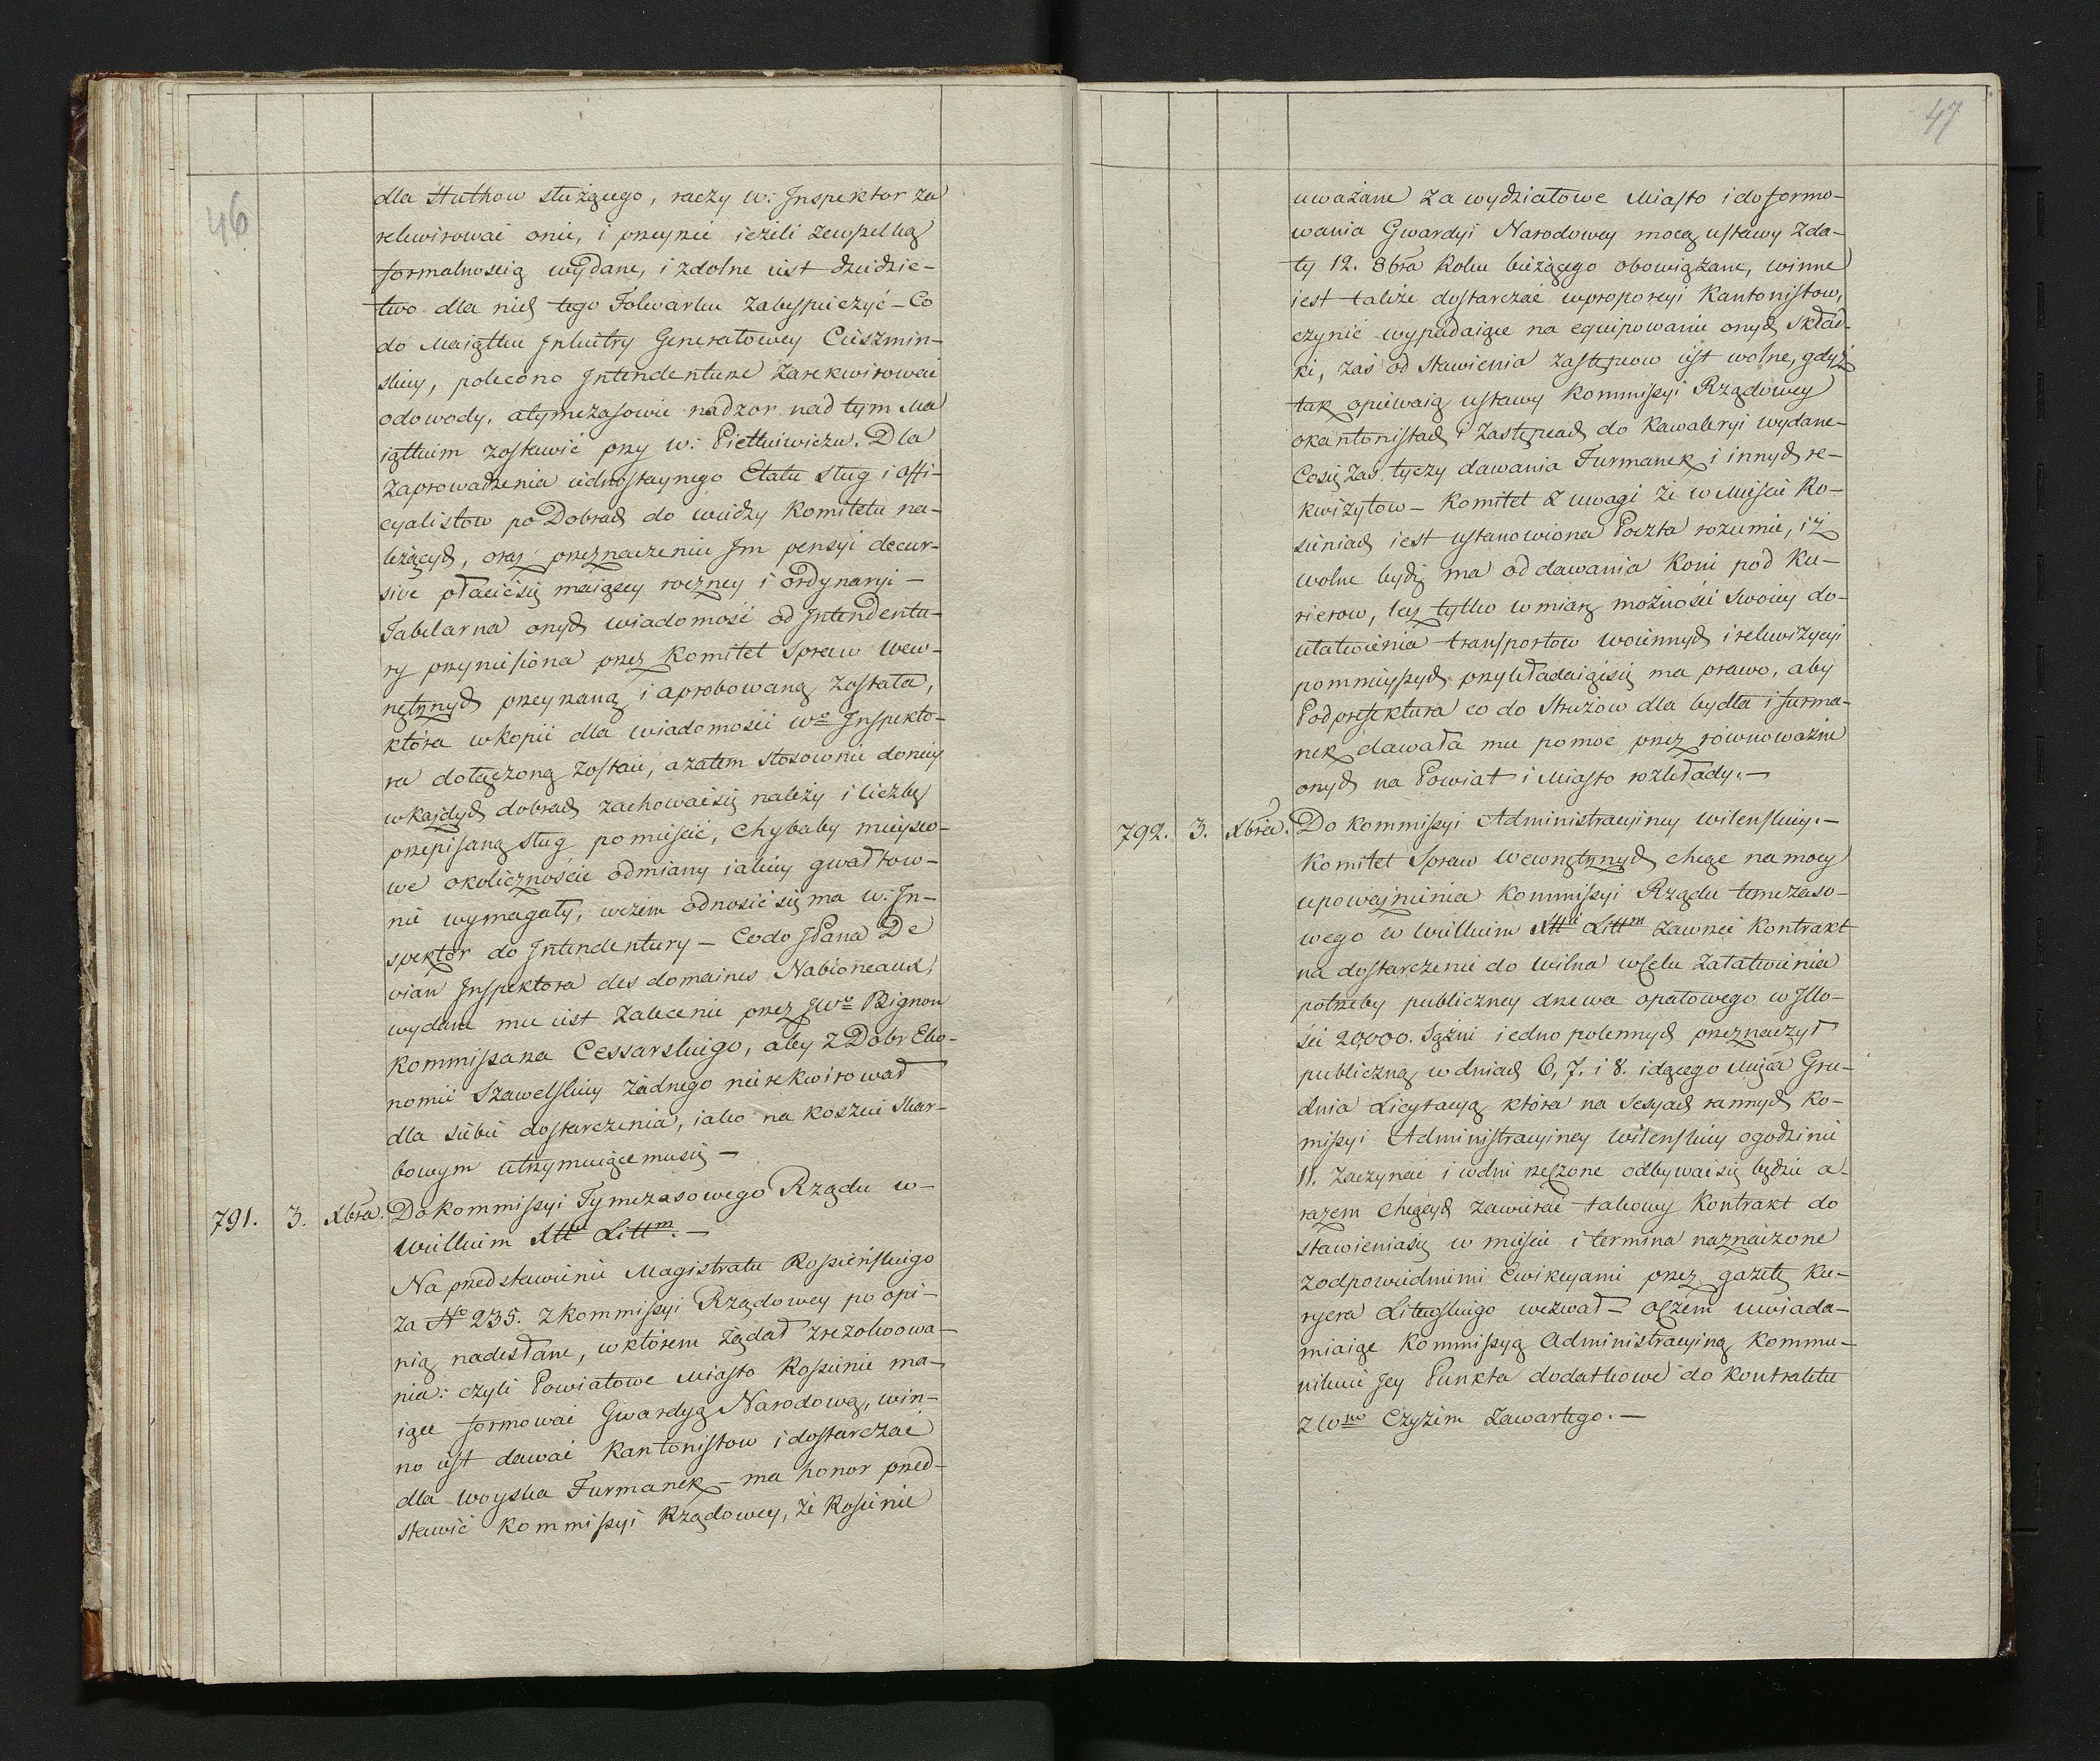 46
dla skutkow służącego, raczy W: Inspektor za
rekwirować onie, i przeyrzeć ieżeli zewszelką
formalnością wydane, i zdolne iest dziedzic-
two dla nich tego Folwarku zabespieczyć – Co
do Maiątku Jnkwitry Generałowey Cieszmin-
skiey, polecono Jntendenturze zarekwirować
odowody, atymczasowie nadzor nad tym Ma
iątkiem zostawić przy W: Pietkiewiczu. Dla
zaprowadzenia iednostaynego Etatu sług i offi-
cyalistow po Dobrach do wiedzy Komitetu na-
leżących, oraz przeznaczeniu Jm pensyi decur-
sive płacić się maiącey roczney i ordynaryi –
Tabelarna onych wiadomość od Jntendentu-
ry przyniesiona przez Komitet Spraw Wew-
nętrznych przeyrzaną i aprobowaną została,
która wkopii dla wiadomości Wo Jnspekto-
ra dołączoną zostaie, azatem stosownie doniey
wkażdych dobrach zachować się należy i liczbę
przepisaną sług pomieścić, chybaby mieysco-
we okoliczności odmiany iakiey gwałtow-
nie wymagały, wczém odnosić się ma W: Jn-
spektor do Jntendentury – Codo JPana De
vian Jnspektora des domaines Nabioneaux,
wydane mu iest zalecenie przez JWo Bignon
Kommissarza Cessarskiego, aby z Dobr Eko-
nomii Szawelskiey żadnego nierekwirował
dla siebie dostarczenia, iako na koszcie Skar-
bowym utrzymuiącemusię –
791. 3. Xbra. Do Kommissyi Tymczasowego Rządu W-
Wielkiem Xttu Littm. –
Na przedstawienie Magistratu Rossieńskiego
za No 235. z Kommissyi Rządowey po opi-
nią nadesłane, w którem żądał zrezolwowa-
nia: czyli Powiatowe Miasto Rossienie ma-
iące formować Gwardyą Narodową, win-
no iest dawać Kantonistow i dostarczać
dla woyska Furmanek – ma honor przed-
stawić Kommissyi Rządowey, że Rossienie
47
uważane za wydziałowe Miasto i do formo-
wania Gwardyi Narodowey mocą ustawy zda-
ty 12. 8bra Roku bieżącego obowiązane, winne
iest także dostarczać wproporcyi Kantonistow,
czynić wypadaiące na equipowanie onych skład-
ki, zaś od stawienia zastępcow iest wolne, gdyż
tak opiewaią ustawy Kommissyi Rządowey
okantonistach i zastępcach do Kawaleryi wydane –
Cosię zaś tyczy dawania Furmanek i innych re-
kwizytow – Komitet z uwagi że w Mieście Ro-
sieniach iest ustanowiona Poczta rozumie, iż
wolne bydź ma od dawania Koni pod Ku-
rierow, lecz tylko w miarę możności swoiey do-
ułatwienia transportow woiennych i rekwizycyi
pomnieyszych przykładaiąc się ma prawo, aby
Podprefektura co do Strużow dla bydła i furma-
nek dawała mu pomoc przez rownoważne
onych na Powiat i Miasto rozkłady. –
792. 3. Xbra. Do Kommissyi Administracyiney Wilenskiey. –
Komitet Spraw Wewnętrznych chcąc na mocy
upoważnienia Kommissyi Rządu tymczaso-
wego w Wielkiem Xttu Littm zawrzeć Kontrakt
na dostarczenie do Wilna wcelu załatwienia
potrzeby publiczney drzewa opałowego w Jlo-
ści 20,000. Sążni iedno polennych przeznaczył
publiczną w dniach 6, 7. i 8. idącego Mśca Gru-
dnia Licytacyą, która na Sesyach rannych Ko-
missyi Administracyiney Wilenskiey o godzinie
11. zaczynać i w dni rzeczone odbywać się będzie a-
razem chcących zawierać takowy Kontrakt do
stawieniasię w mieście i termina naznaczone
zodpowiedniemi Ewikcyami przez gazetę Ku-
ryera Litewskiego wezwał – oczém uwiada-
miaiąc Kommissyą Administracyiną, kommu-
nikuie Jey Punkta dodatkowe do Kontraktu
z Wmo Czyżem zawartego. –